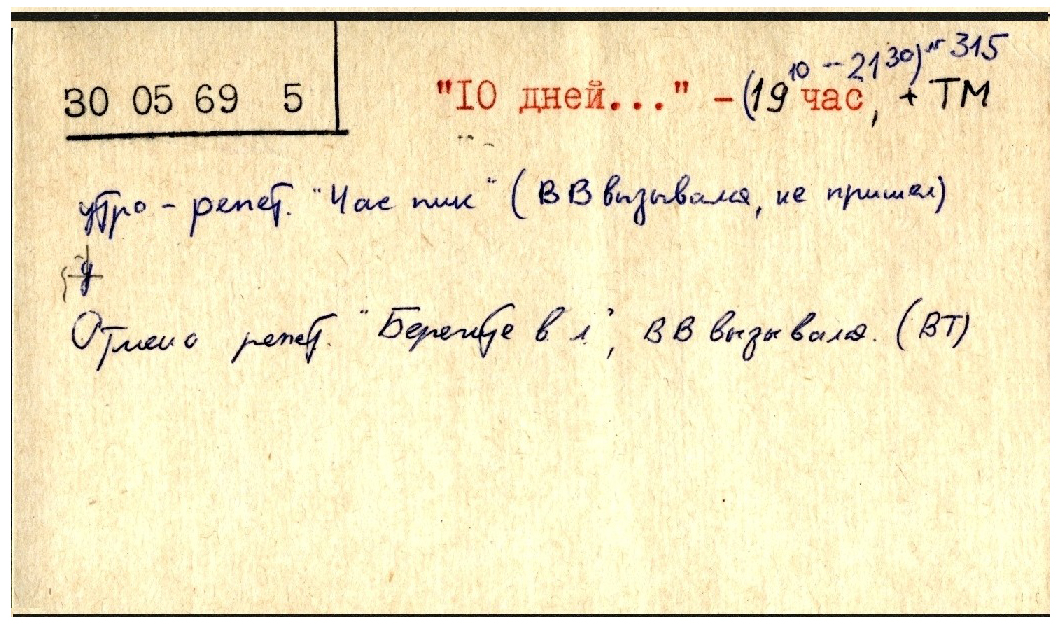 30 05 69 5
"10 дней..." – (19¹⁰ – 21³⁰) № 315
час, + ТМ
утро – репет. "Час пик" (ВВ вызывался, не пришел)
у
Отмено репет. "Берегите в л", ВВ вызывался. (ВТ)